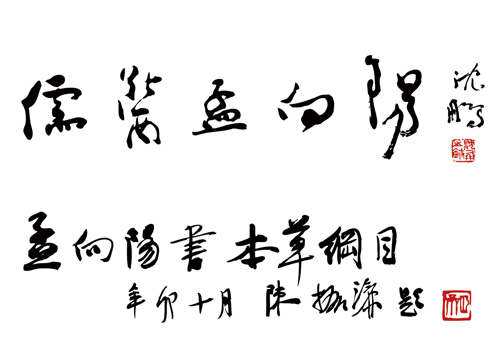 儒醫孟向陽
沈鵬
孟向陽書本草綱目
辛卯十月 陳振濂題